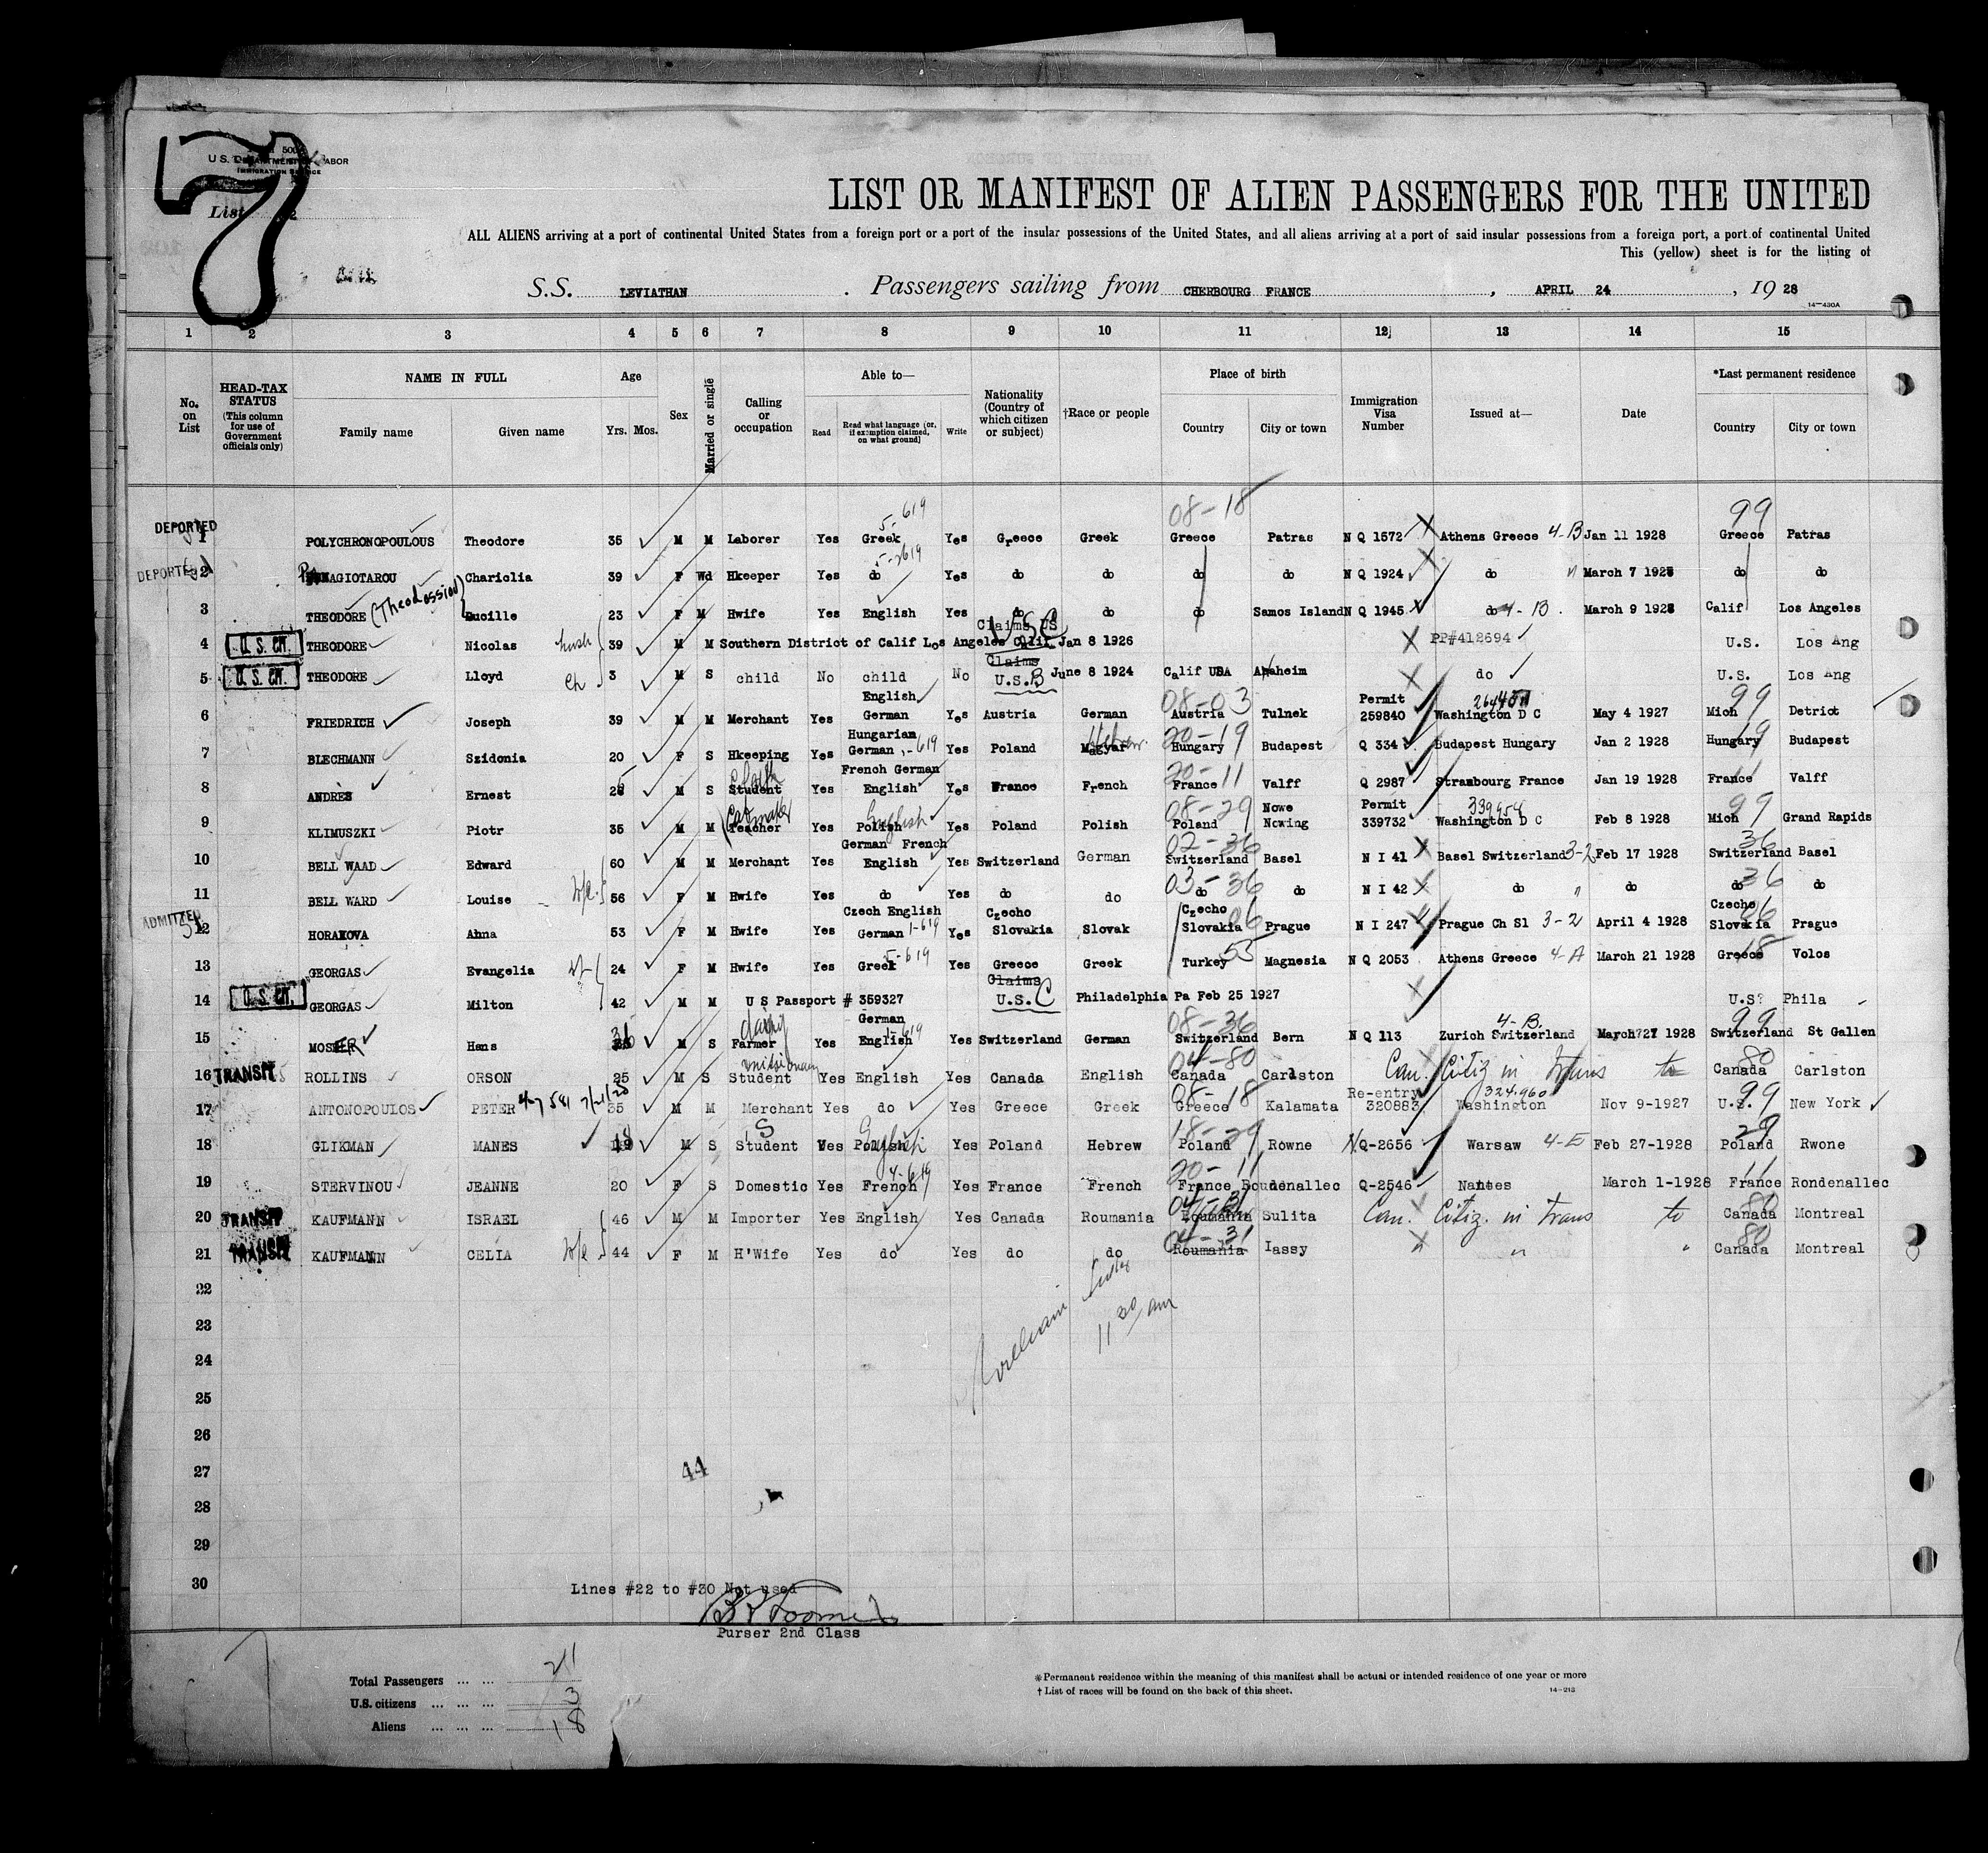 7
U.S. DEPARTMENT OF LABOR
IMMIGRATION SERVICE
List
LIST OR MANIFEST OF ALIEN PASSENGERS FOR THE UNITED
ALL ALIENS arriving at a port of continental United States from a foreign port or a port of the insular possessions of the United States, and all aliens arriving at a port of said insular possessions from a foreign port, a port of continental United
This (yellow) sheet is for the listing of
S.S. LEVIATHAN . Passengers sailing from CHERBOURG FRANCE , APRIL 24 , 19 28
14—430A
1 2 3 4 5 6 7 8 9 10 11 12 13 14 15
No. on List HEAD-TAX STATUS (This column for use of Government officials only) NAME IN FULL Family name Given name Age Yrs. Mos. Sex Married or single Calling or occupation Able to— Read Read what language [or, if exemption claimed, on what ground] Write Nationality (Country of which citizen or subject) †Race or people Place of birth Country City or town Immigration Visa Number Issued at— Date *Last permanent residence Country City or town
08-18 99
5-619
DEPORTED 1 POLYCHRONOPOULOUS Theodore 35 M M Laborer Yes Greek Yes Greece Greek Greece Patras N Q 1572 Athens Greece 4-B Jan 11 1928 Greece Patras
5-2619
DEPORTED 2 PANAGIOTAROU Chariclia 39 F Wd Hkeeper Yes do Yes do do do do N Q 1924 do " March 7 1928 do do
3 THEODORE (Theodossiou) Lucille 23 F M Hwife Yes English Yes do do do Samos Island N Q 1945 do 4-B. March 9 1928 Calif Los Angeles
Claims US
U. S. CIT. 4 THEODORE Nicolas husb 39 M M Southern District of Calif Los Angeles Calif Jan 8 1926 USC PP#412694 U.S. Los Ang
Claims
U. S. CIT. 5 THEODORE Lloyd ch 3 M S child No child No U.S.B June 8 1924 Calif USA Anaheim do U.S. Los Ang
English 08-03 Permit 99
6 FRIEDRICH Joseph 39 M M Merchant Yes German Yes Austria German Austria Tulnek 259840 Washington D C May 4 1927 Mich Detriot
Hungarian Hebrew 20-19 19
7 BLECHMANN Szidonia 20 F S Hkeeping Yes German 1-619 Yes Poland Magyar Hungary Budapest Q 334 Budapest Hungary Jan 2 1928 Hungary Budapest
French German 20-11 11
8 ANDRES Ernest 25 M S Student Yes English Yes France French France Valff Q 2987 Strambourg France Jan 19 1928 France Valff
(Cabmaker English 08-29 Nowe Permit 339954 99
9 KLIMUSZKI Piotr 35 M M Teacher Yes Polish Yes Poland Polish Poland Nowing 339732 Washington D C Feb 8 1928 Mich Grand Rapids
German French 02-36 36
10 BELL WAAD Edward 60 M M Merchant Yes English Yes Switzerland German Switzerland Basel N I 41 Basel Switzerland 3-2 Feb 17 1928 Switzerland Basel
03-36 36
11 BELL WARD Louise w/e. 56 F M Hwife Yes do Yes do do do do N I 42 do " do do do
Czech English Czecho Czecho 06 Czecho 06
ADMITTED 12 HORAKOVA Ahna 53 F M Hwife Yes German 1-619 Yes Slovakia Slovak Slovakia Prague N I 247 Prague Ch Sl 3-2 April 4 1928 Slovakia Prague
5-619 53 18
13 GEORGAS Evangelia wf 24 F M Hwife Yes Greek Yes Greece Greek Turkey Magnesia N Q 2053 Athens Greece 4-A March 21 1928 Greece Volos
Claims
U. S. CIT. 14 GEORGAS Milton 42 M M U S Passport # 359327 U.S. C Philadelphia Pa Feb 25 1927 U.S? Phila
dairy German 08-36 4-B. 99
15 MOSHER Hans 36 M S Farmer Yes English 1-619 Yes Switzerland German Switzerland Bern N Q 113 Zurich Switzerland March?27 1928 Switzerland St Gallen
missionary 04-80 80
TRANSIT 16 ROLLINS ORSON 25 M S Student Yes English Yes Canada English Canada Carlston Can. Citiz in trans to Canada Carlston
08-18 Re-entry 324.960 99
17 ANTONOPOULOS PETER 35 M M Merchant Yes do Yes Greece Greek Greece Kalamata 320883 Washington Nov 9-1927 U.S. New York
S English 18-29 29
18 GLIKMAN MANES 18 M S Student Yes Polish Yes Poland Hebrew Poland Rowne NQ-2656 Warsaw 4-E Feb 27-1928 Poland Rwone
4-619 20-11 11
19 STERVINOU JEANNE 20 F S Domestic Yes French Yes France French France Roudenallec Q-2546 Nantes March 1-1928 France Rondenallec
04-31 80
TRANSIT 20 KAUFMANN ISRAEL 46 M M Importer Yes English Yes Canada Roumania Roumania Sulita Can. Citiz. in Trans to Canada Montreal
04-31 80
TRANSIT 21 KAUFMANN CELIA w/e 44 F M H'Wife Yes do Yes do do Roumania Iassy " " " Canada Montreal
22
23
11 30/am
24
25
26
27
44
28
29
30
Lines #22 to #30 Not used
Purser 2nd Class
Total Passengers ... ... 21
U.S. citizens ... ... ... 3
Aliens ... ... ... 18
*Permanent residence within the meaning of this manifest shall be actual or intended residence of one year or more
† List of races will be found on the back of this sheet.
14—213